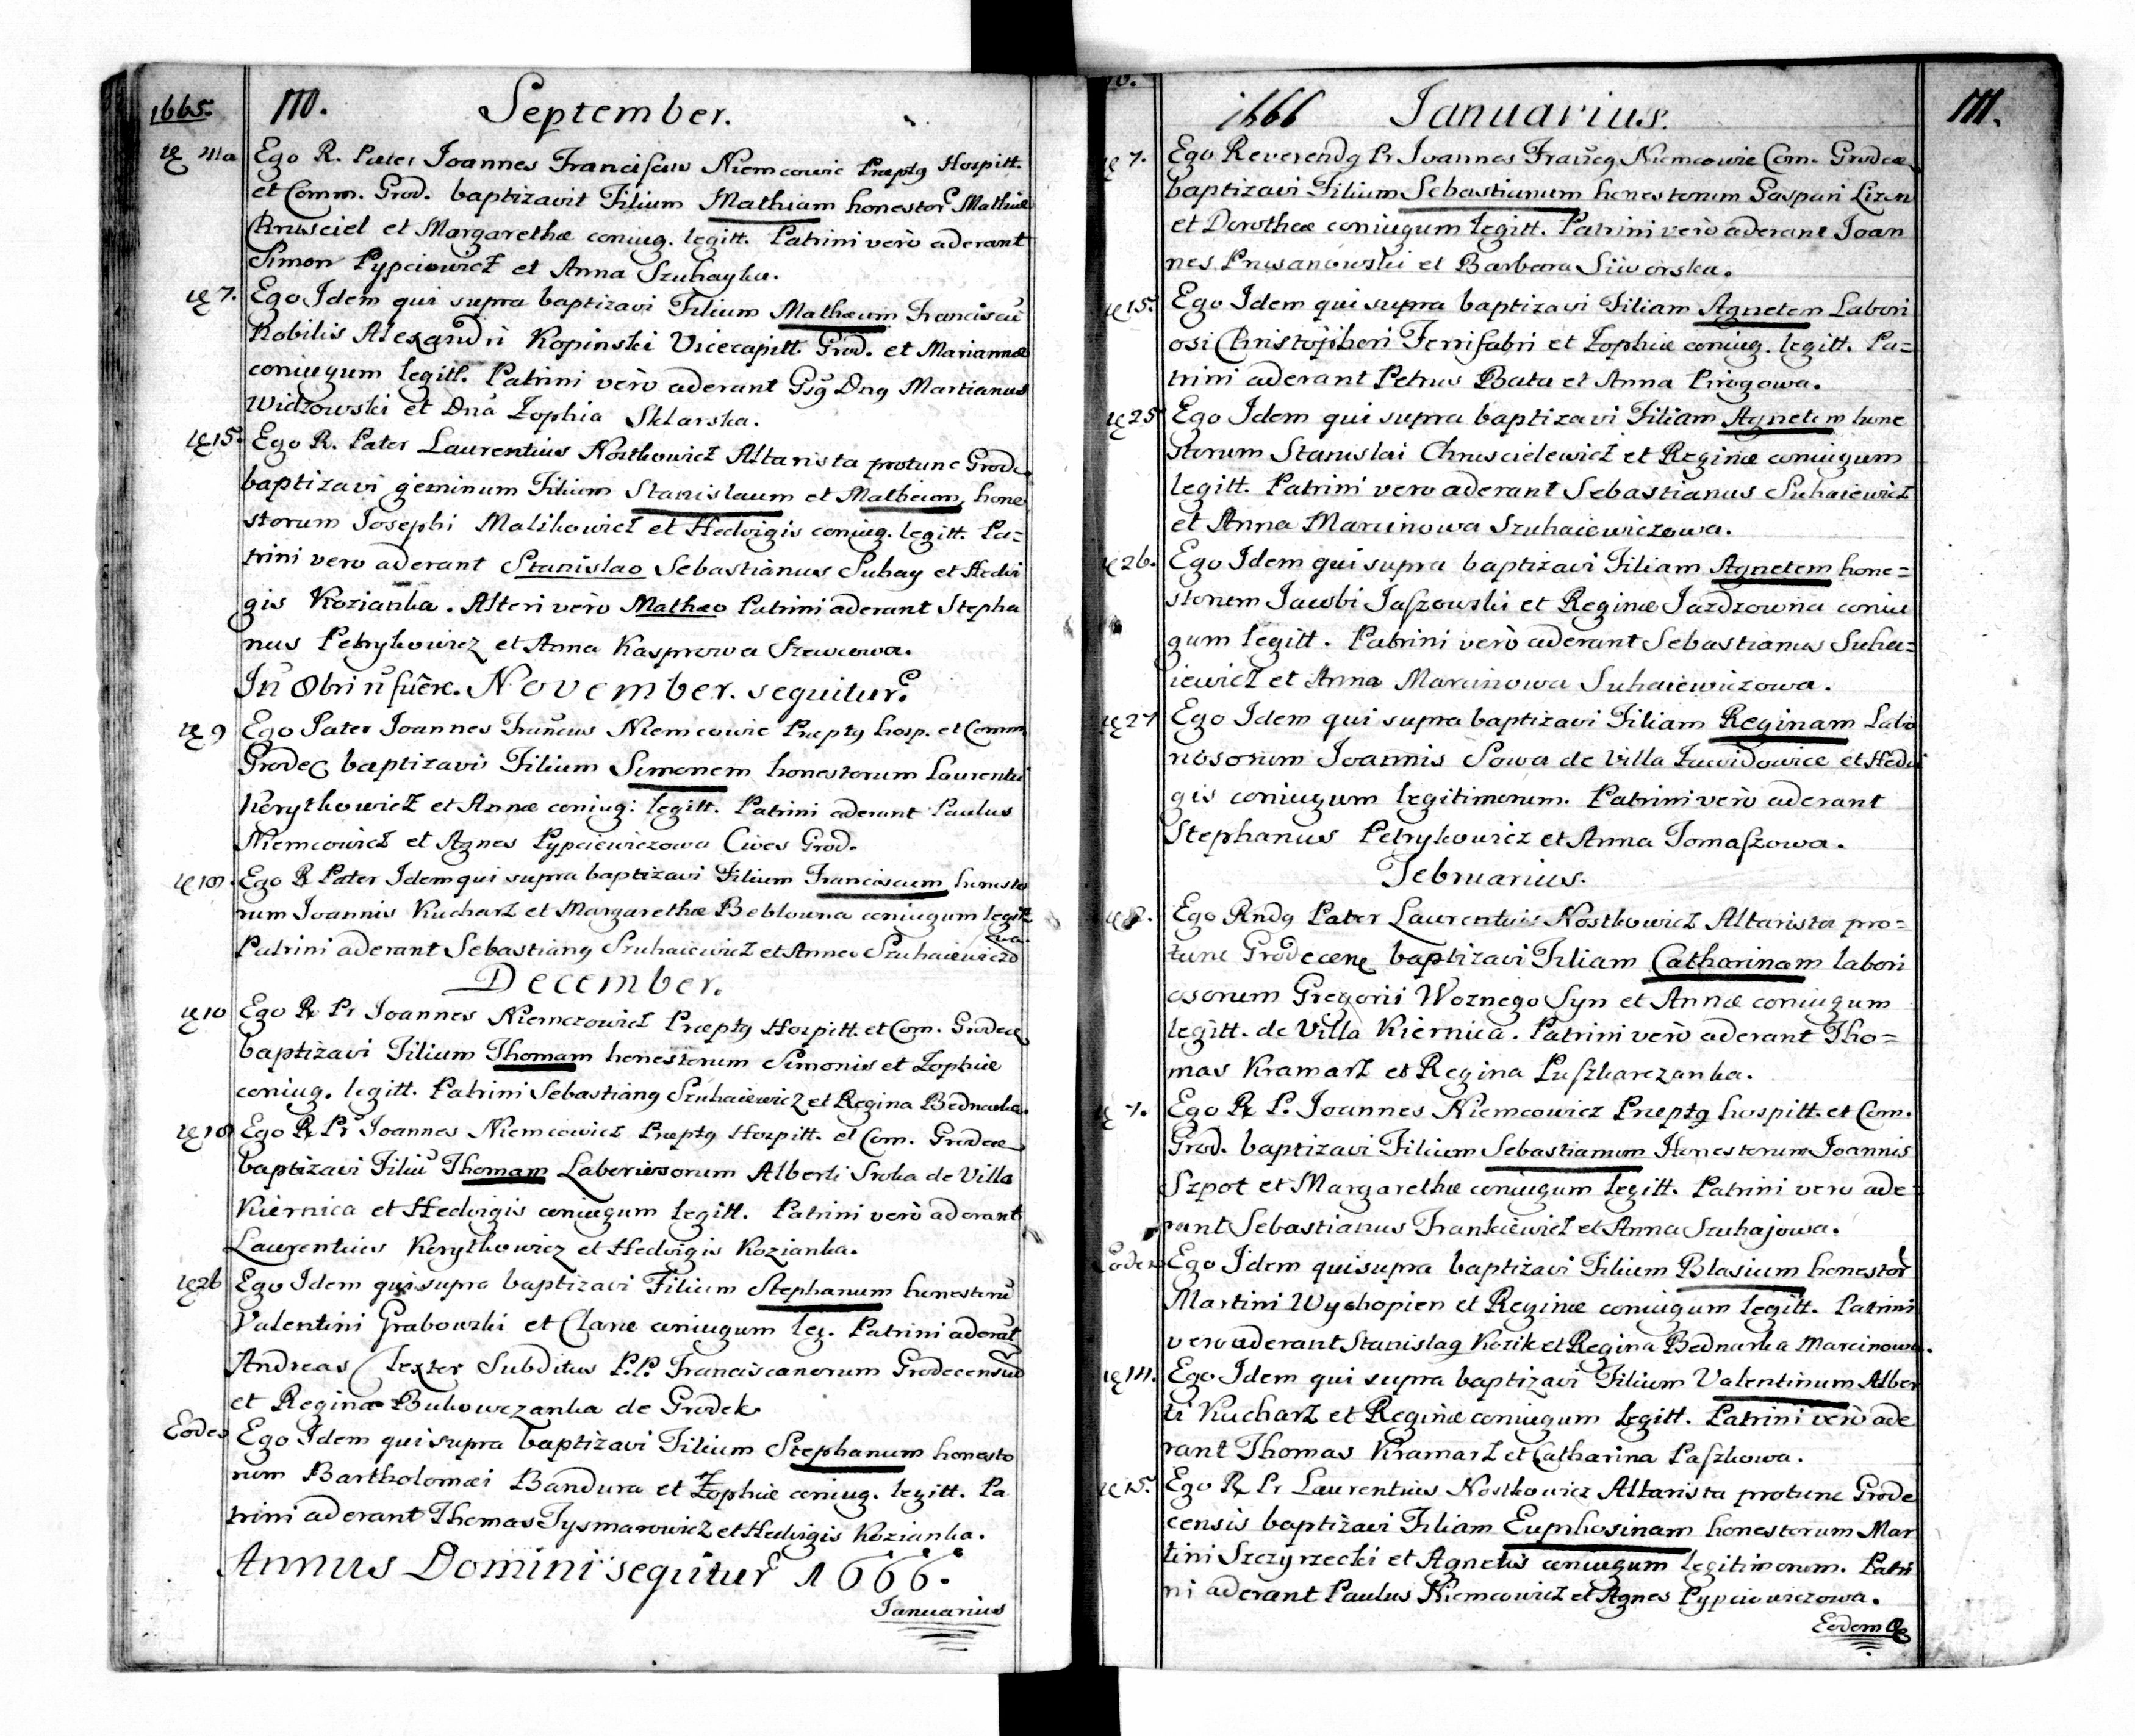 1665. 110. September.
Ego R. Pater Joannes Franciscus Niemcowic Præptg Hospitt.
et Comm. Grod. baptizavit Filium Mathiam honestor Mathiæ
Chrusciel et Margarethæ coniug. legitt. Patrini verò aderant
Simon Pypciowicz et Anna Szuhayka.
7. Ego Idem qui supra baptizavi Filium Mathæum Franciscū
Nobilis Alexandri Kopinski Vicecapitt. Grod. et Mariannæ
coniugum legitt. Patrini verò aderant Gsg Dng Martianus
Widzowski et Dnā Zophia Sklarska.
15. Ego R. Pater Laurentius Nostkowicz Altarista protunc Grode
baptizavi geminum Filium Stanislaum et Matheum, hone
storum Josephi Malikowicz et Hedvigis coniug. legitt. Pa=
trini vero aderant Stanislao Sebastianus Suhay et Hedvi
gis Kozianka. Alteri verò Mathæo Patrini aderant Stepha
nus Petrykowicz et Anna Kasprowa Szewcowa.
In Obri ñ fuêre. November. sequitur.
9 Ego Pater Joannes Francus Niemcowic Præptg hosp. et Comm
Grodec baptizavi Filium Simonem honestorum Laurentii
Korytkowicz et Annæ coniug: legitt. Patrini aderant Paulus
Niemcowicz et Agnes Pypciewiczowa Cives Grod.
Ego R Pater Idem qui supra baptizavi Filium Franciscum honesto
rum Joannis Kucharz et Margarethæ Beblowna coniugum legitt
Patrini aderant Sebastiang Szuhaiewicz et Anna Szuhaiewiczo
wa.
December.
10 Ego R Pr Joannes Niemczowicz Præptg Hospitt. et Com. Grodec
baptizavi Filium Thomam honestorum Simonis et Zophiæ
coniug. legitt. Patrini Sebastiang Szuhaiewicz et Regina Bednarka.
Ego R Pr Joannes Niemcowicz Præptg Hospitt. et Com. Grodec
baptizavi Filiū Thomam Laboriosorum Alberti Sroka de Villa
Kiernica et Hedvigis coniugum legitt. Patrini verò aderant
Laurentius Korytkowicz et Hedvigis Kozianka.
26 Ego Idem qui supra baptizavi Filium Stephanum honestorū
Valentini Grabowski et Claræ coniugum leg. Patrini aderāt
Andreas Clexter Subditus P.P. Franciscanorum Grodecensiū
et Regina Bukowczanka de Grodek
Eodem Ego Idem qui supra baptizavi Filium Stephanum honesto
rum Bartholomæi Bandura et Zophiæ coniug. legitt. Pa
trini aderant Thomas Tysmarowicz et Hedvigis Kozianka.
Annus Domini sequitur 1666.
Januarius
1666 Januarius. 111.
7. Ego Reverendg Pr Joannes Francg Niemcowic Com. Grodec
baptizavi Filium Sebastianum honestorum Gaspari Lizen
et Dorotheæ coniugum legitt. Patrini verò aderant Joan
nes Prusanowski et Barbara Siworska.
15. Ego Idem qui supra baptizavi Filiam Agnetem Labori
osi Christophori Ferrifabri et Zophiæ coniug. legitt. Pa=
trini aderant Petrus Bata et Anna Pirogowa.
25 Ego Idem qui supra baptizavi Filiam Agnetem hone
storum Stanislai Chruscielewicz et Reginæ coniugum
legitt. Patrini vero aderant Sebastianus Suhaiewicz
et Anna Marcinowa Szuhaiewiczowa.
26. Ego Idem qui supra baptizavi Filiam Agnetem hone=
storum Jacobi Jaszowski et Reginæ Jazdzowna coniu
gum legitt. Patrini verò aderant Sebastianus Suha=
iewicz et Anna Marcinowa Suhaiewiczowa.
27 Ego Idem qui supra baptizavi Filiam Reginam Labo
riosorum Joannis Sowa de Villa Zawidowice et Hedvi
gis coniugum legitimorum. Patrini verò aderant
Stephanus Petrykowicz et Anna Tomaszowa.
Februarius.
2. Ego Rndg Pater Laurentius Nostkowicz Altarista pro=
tunc Grodecens baptizavi Filiam Catharinam labori
osorum Gregorii Woznego Syn et Annæ coniugum
legitt. de Villa Kiernica. Patrini verò aderant Tho=
mas Kramarz et Regina Puszkarczanka.
7. Ego R P. Joannes Niemcowicz Præptg hospitt. et Com.
Grod. baptizavi Filium Sebastianum Honestorum Joannis
Szpot et Margarethæ coniugum legitt. Patrini vero ade=
rant Sebastianus Frankiewicz et Anna Szuhajowa.
Eodem Ego Idem qui supra baptizavi Filium Blasium honestor
Martini Wychopien et Reginæ coniugum legitt. Patrini
vero aderant Stanislag Kozik et Regina Bednarka Marcinowa.
14. Ego Idem qui supra baptizavi Filium Valentinum Alber
ti Kucharz et Reginæ coniugum legitt. Patrini verò ade
rant Thomas Kramarz et Catharina Paszkowa.
15. Ego R Pr Laurentius Nostkowicz Altarista protunc Grode
censis baptizavi Filiam Euphosinam honestorum Mar
tini Szczyrzecki et Agnetis coniugum legitimorum. Patri
ni aderant Paulus Niemcowicz et Agnes Pypciowiczowa.
Eodem